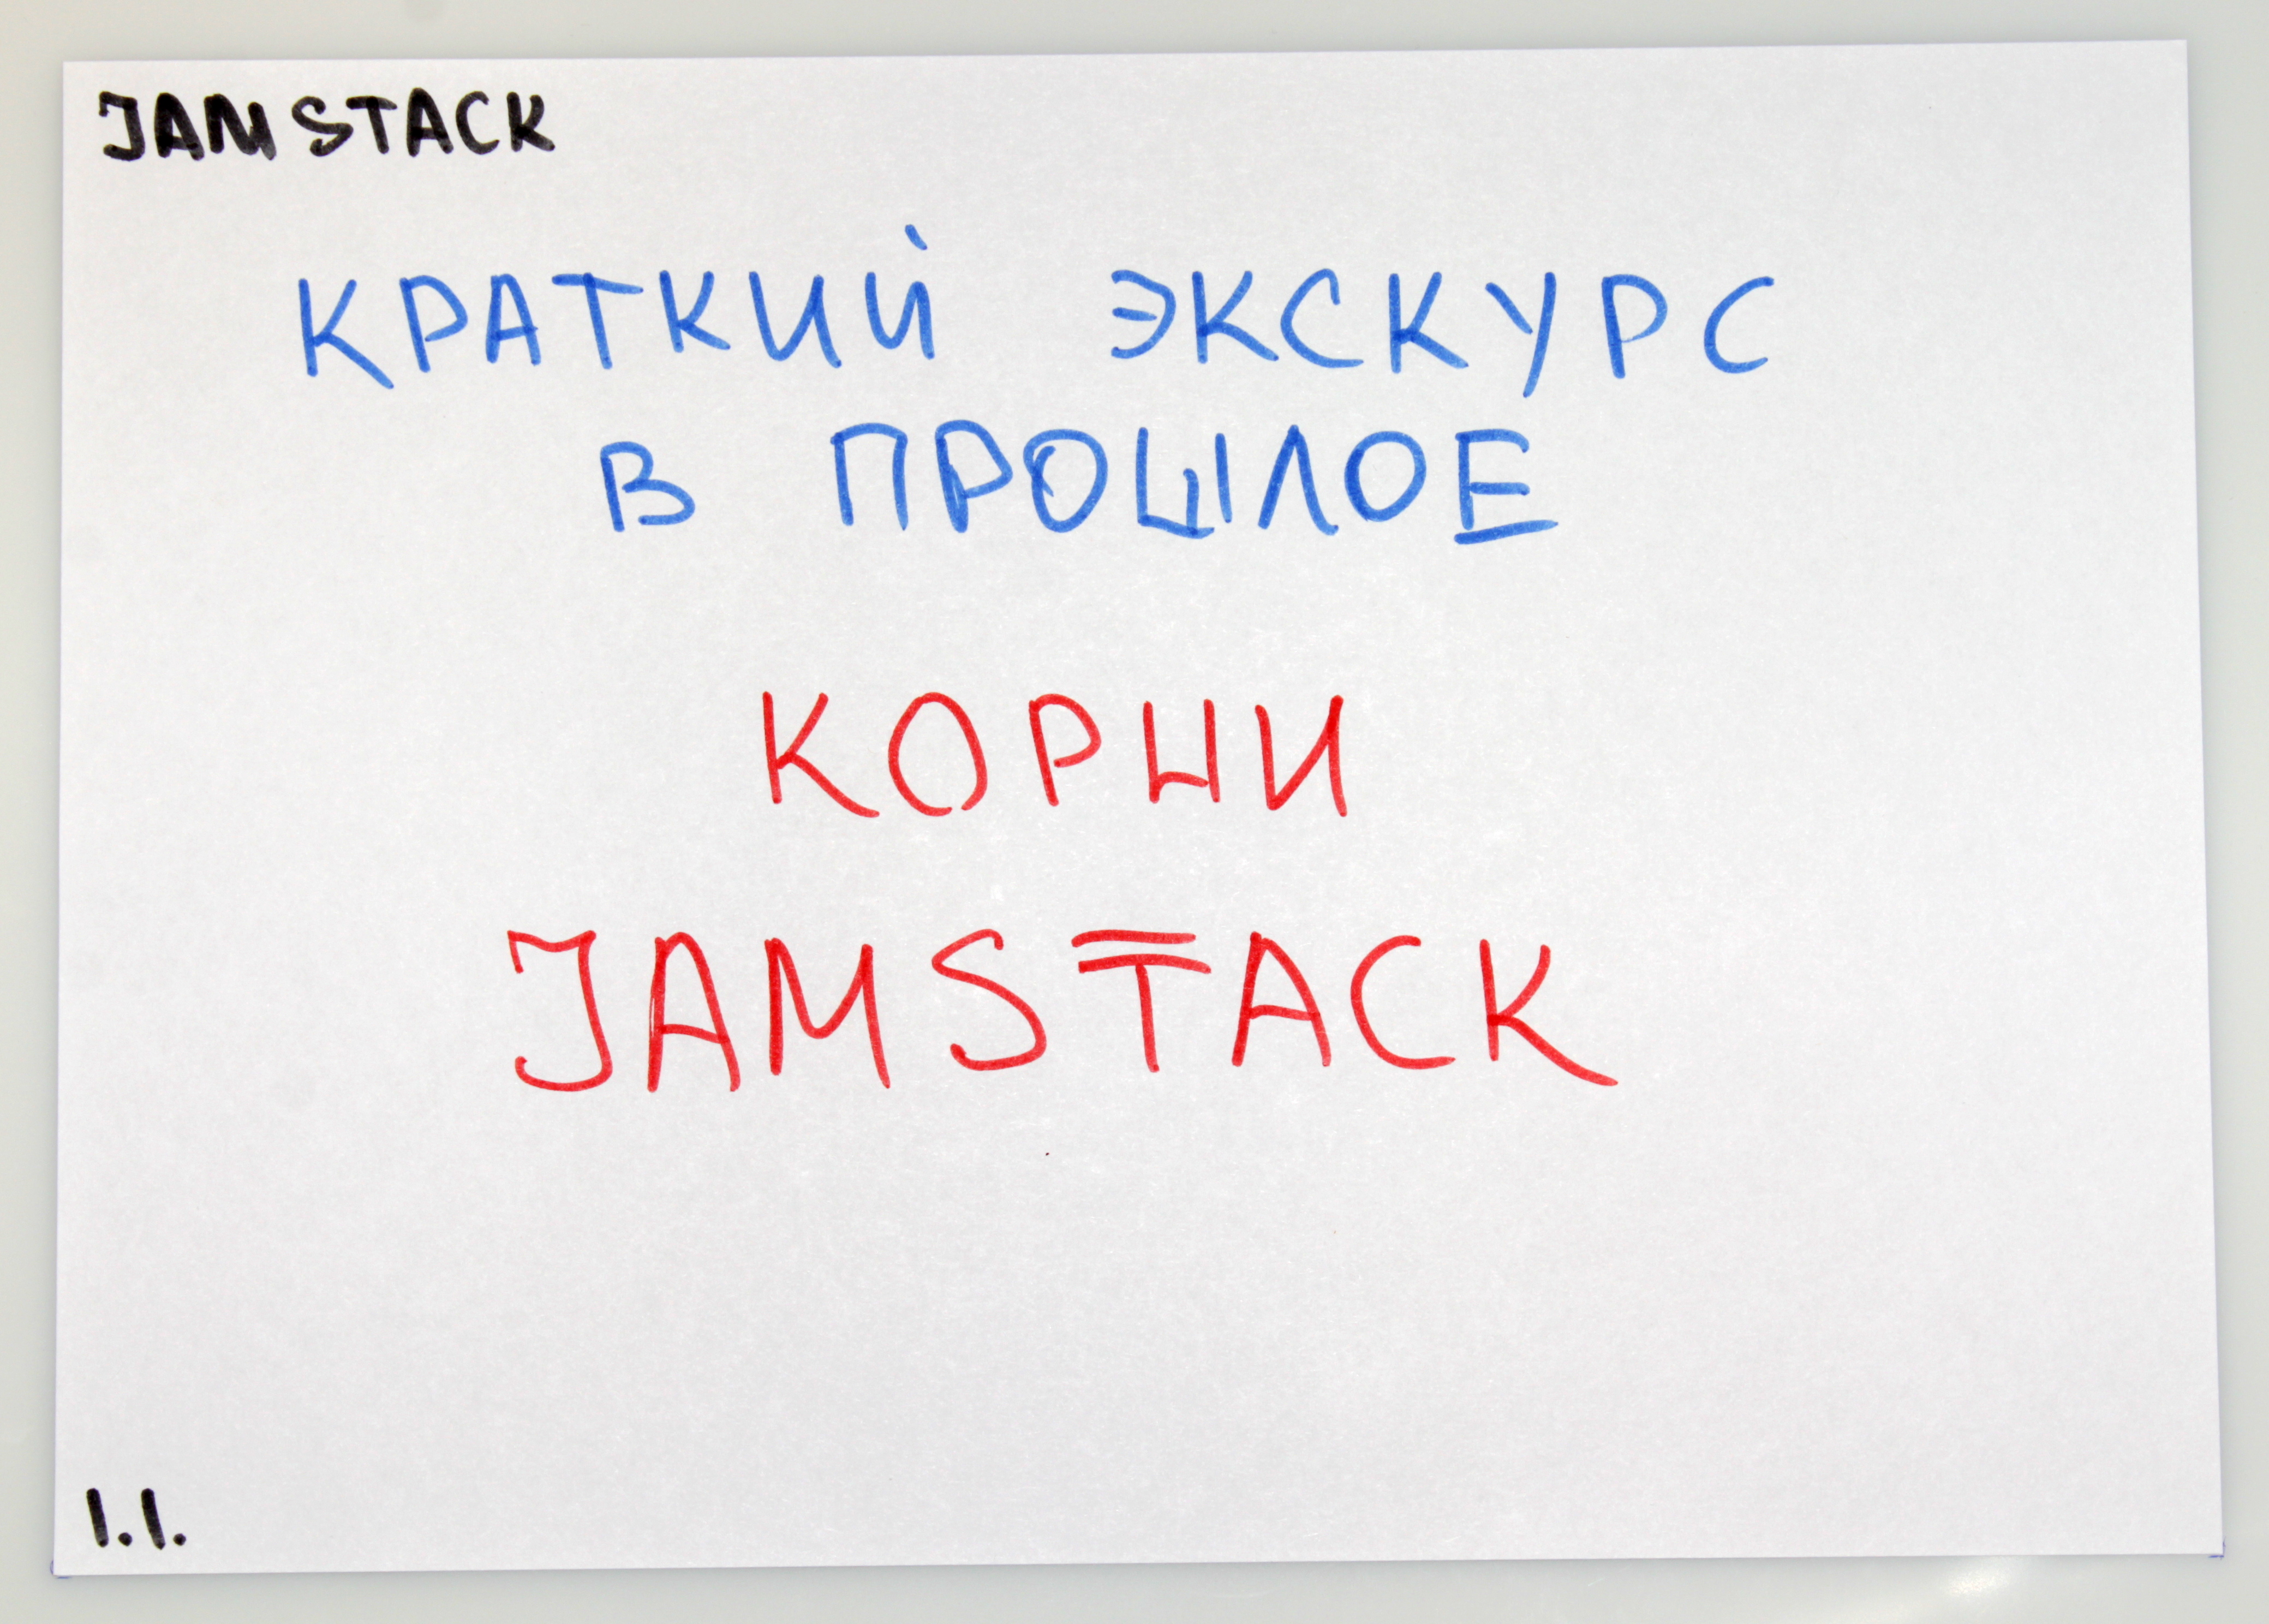 JAMSTACK
КРАТКИЙ ЭКСКУРС
В ПРОШЛОЕ
КОРНИ
JAMSTACK
1.1.